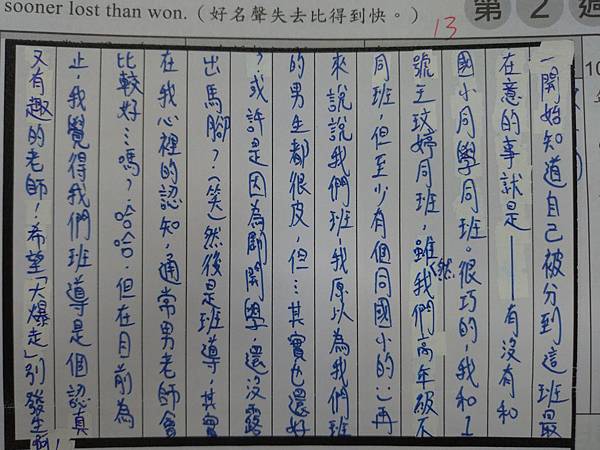 sooner lost than won.（好名聲失去比得到快。）
13
第 2 週
10
一開始知道自己被分到這班最
在意的事就是——有沒有和
國小同學同班。很巧的，我和1
號王玟婷同班，雖然我們高年級不
同班，但至少有個同國小的:)再
來說說我們班，我原以為我們班
的男生都很皮，但…其實也還好
，或許是因為剛開學，還沒露
出馬腳？（笑）然後是班導，其實
在我心裡的認知，通常男老師會
比較好…嗎？哈哈哈，但在目前為
止，我覺得我們班導是個認真
又有趣的老師！希望「大爆走」別發生啊！